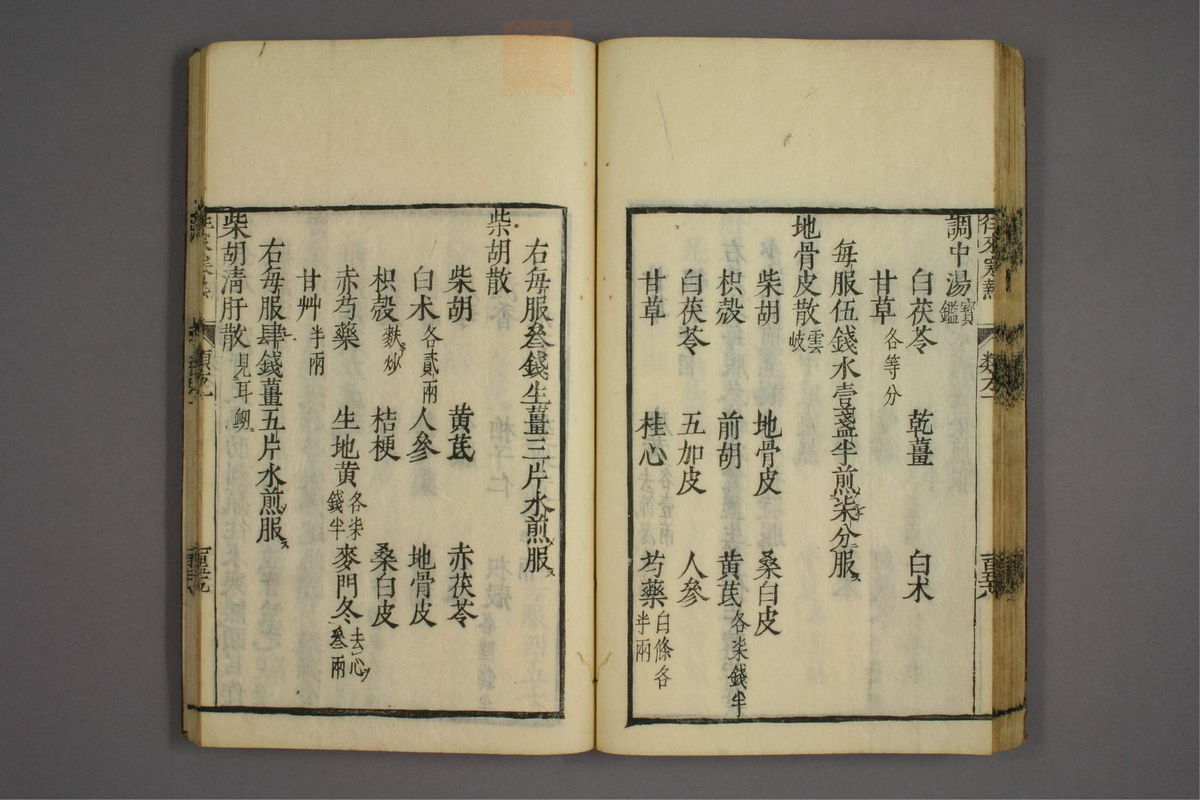 往來寒熱
調中湯 寶鑑
白茯苓 乾薑 白朮
甘草 各等分
每服伍錢水壹盞半煎柒分服
地骨皮散 雲岐
柴胡 地骨皮 桑白皮
枳殼 前胡 黃芪 各柒錢半
白茯苓 五加皮 人參
甘草 桂心 芍藥 白條各半兩
右每服叄錢生薑三片水煎服
柴胡散
柴胡 黃芪 赤茯苓
白朮 各貳兩 人參 地骨皮
枳殼 麩炒 桔梗 桑白皮
赤芍藥 生地黃 各柒錢半 麥門冬 去心叄兩
甘艸 半兩
右每服肆錢薑五片水煎服
柴胡清肝散 見耳衂